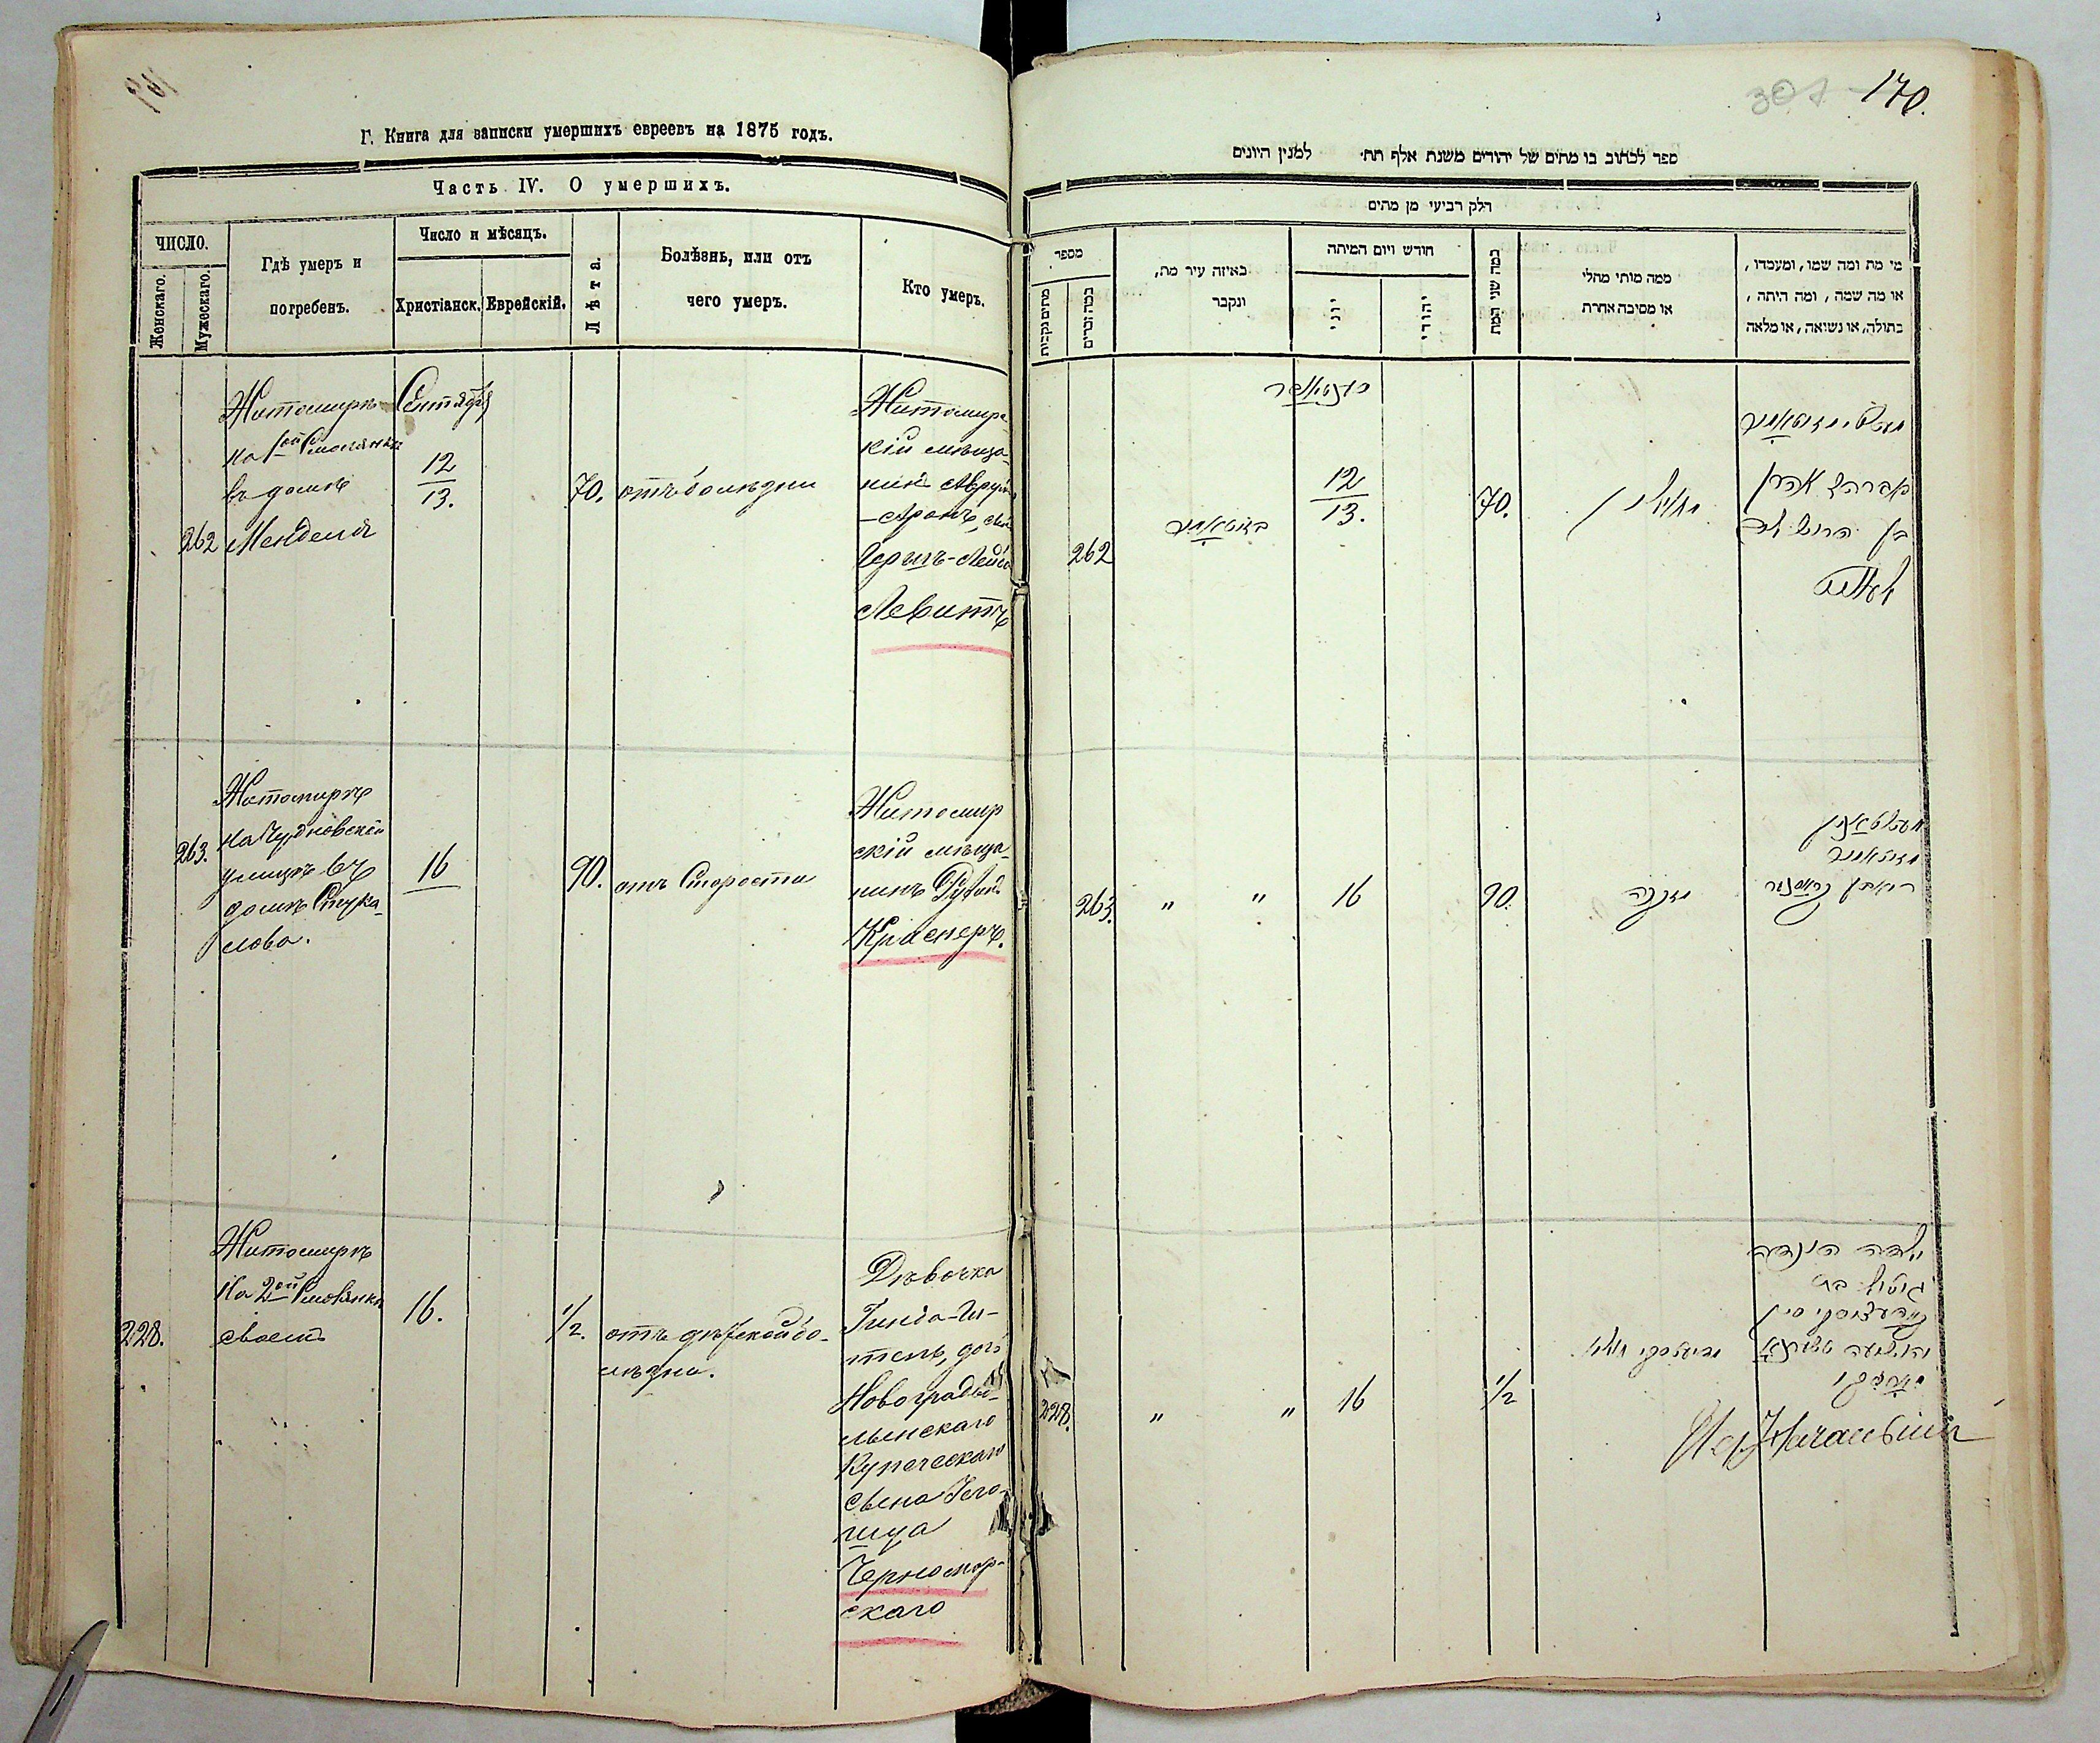 Г. Книга для записки умершихъ евреевъ на 1875 годъ.
Часть IV. О умершихъ.
ЧИСЛО.
Женскаго.
Мужескаго.
Гдѣ умеръ и
погребенъ.
Число и мѣсяцъ.
Христіанск.
Еврейскій.
Лѣта.
Болѣзнь, или отъ
чего умеръ.
Кто умеръ.
262
Житомиръ
на 1ой Смолянкѣ
въ домѣ
Менделя
Сентября
12
13.
70.
отъ болѣзни
Житомир
скій мѣща-
нинъ Аврумъ
-Аронъ,
Гершъ-Лейб
Левитъ
263.
Житомиръ
на Чудновской
улицѣ въ
домѣ Стука-
лова.
16
90.
отъ Старости
Житомир
скій мѣща-
нинъ Рувинъ
Краснеръ.
228.
Житомиръ
На 2ой Смолянкѣ
своемъ
16.
1/2.
отъ дѣтской бо-
лѣзни.
Дѣвочка
Гинда-Ги-
тель, дочь
Новоградво-
лынскаго
Купеческаго
сына Іего-
шуа
Черномор-
скаго
301 170.
ספר לכתוב בו מתים של יהודים משנת אלף תת׳ למנין היונים
חלק רביעי מן מתים
מספר
מתים נקבות
כמה זכרים
באיזה עיר מת,
ונקבר
חודש ויום המיתה
יוני
יהודי
כמה שני המת
ממה מותי מחלי
או מסיבה אחרת
מי מת ומה שמו, ומעמדו,
או מה שמה, ומה היתה,
בתולה, או נשיאה, או מלאה
262
12
13.
70.
אברהם אהרן
בן הירש ליב
לעוויט
263.
" "
16
90.
מזקנה
ראובן קראסנער
228.
" "
16
1/2
ילדה הינדה
גיטל בת